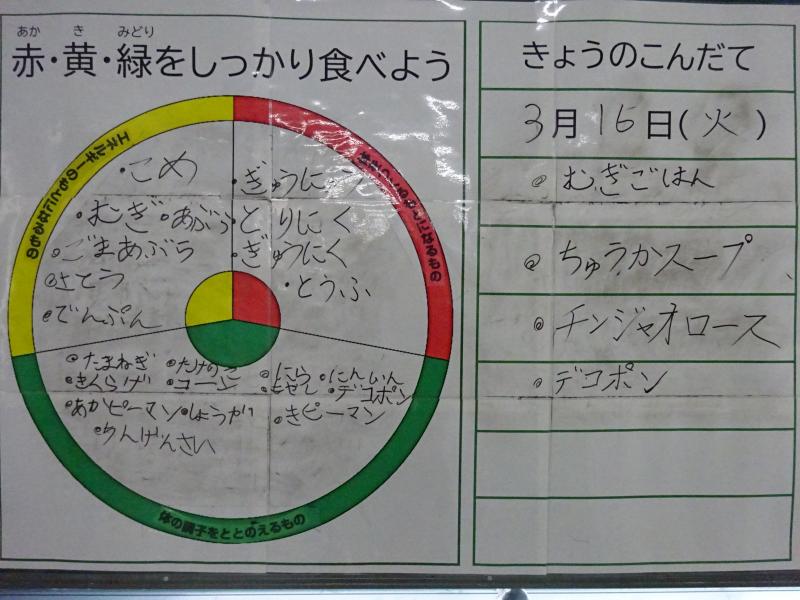 あか き みどり
赤・黄・緑をしっかり食べよう
エネルギーのもとになるもの
になるもの
・こめ
・むぎ・あぶら
・ごまあぶら
・さとう
・でんぷん
・ぎゅうにゅう
・とりにく
・ぎゅうにく
・とうふ
・たまねぎ ・たけのこ ・にら ・にんじん
・きくらげ ・コーン ・もやし ・デコポン
・あかピーマン ・しょうが ・きピーマン
・ちんげんさい
体の調子をととのえるもの
きょうのこんだて
3月16日(火)
◎ むぎごはん
◎ ちゅうかスープ
◎ チンジャオロース
◎ デコポン